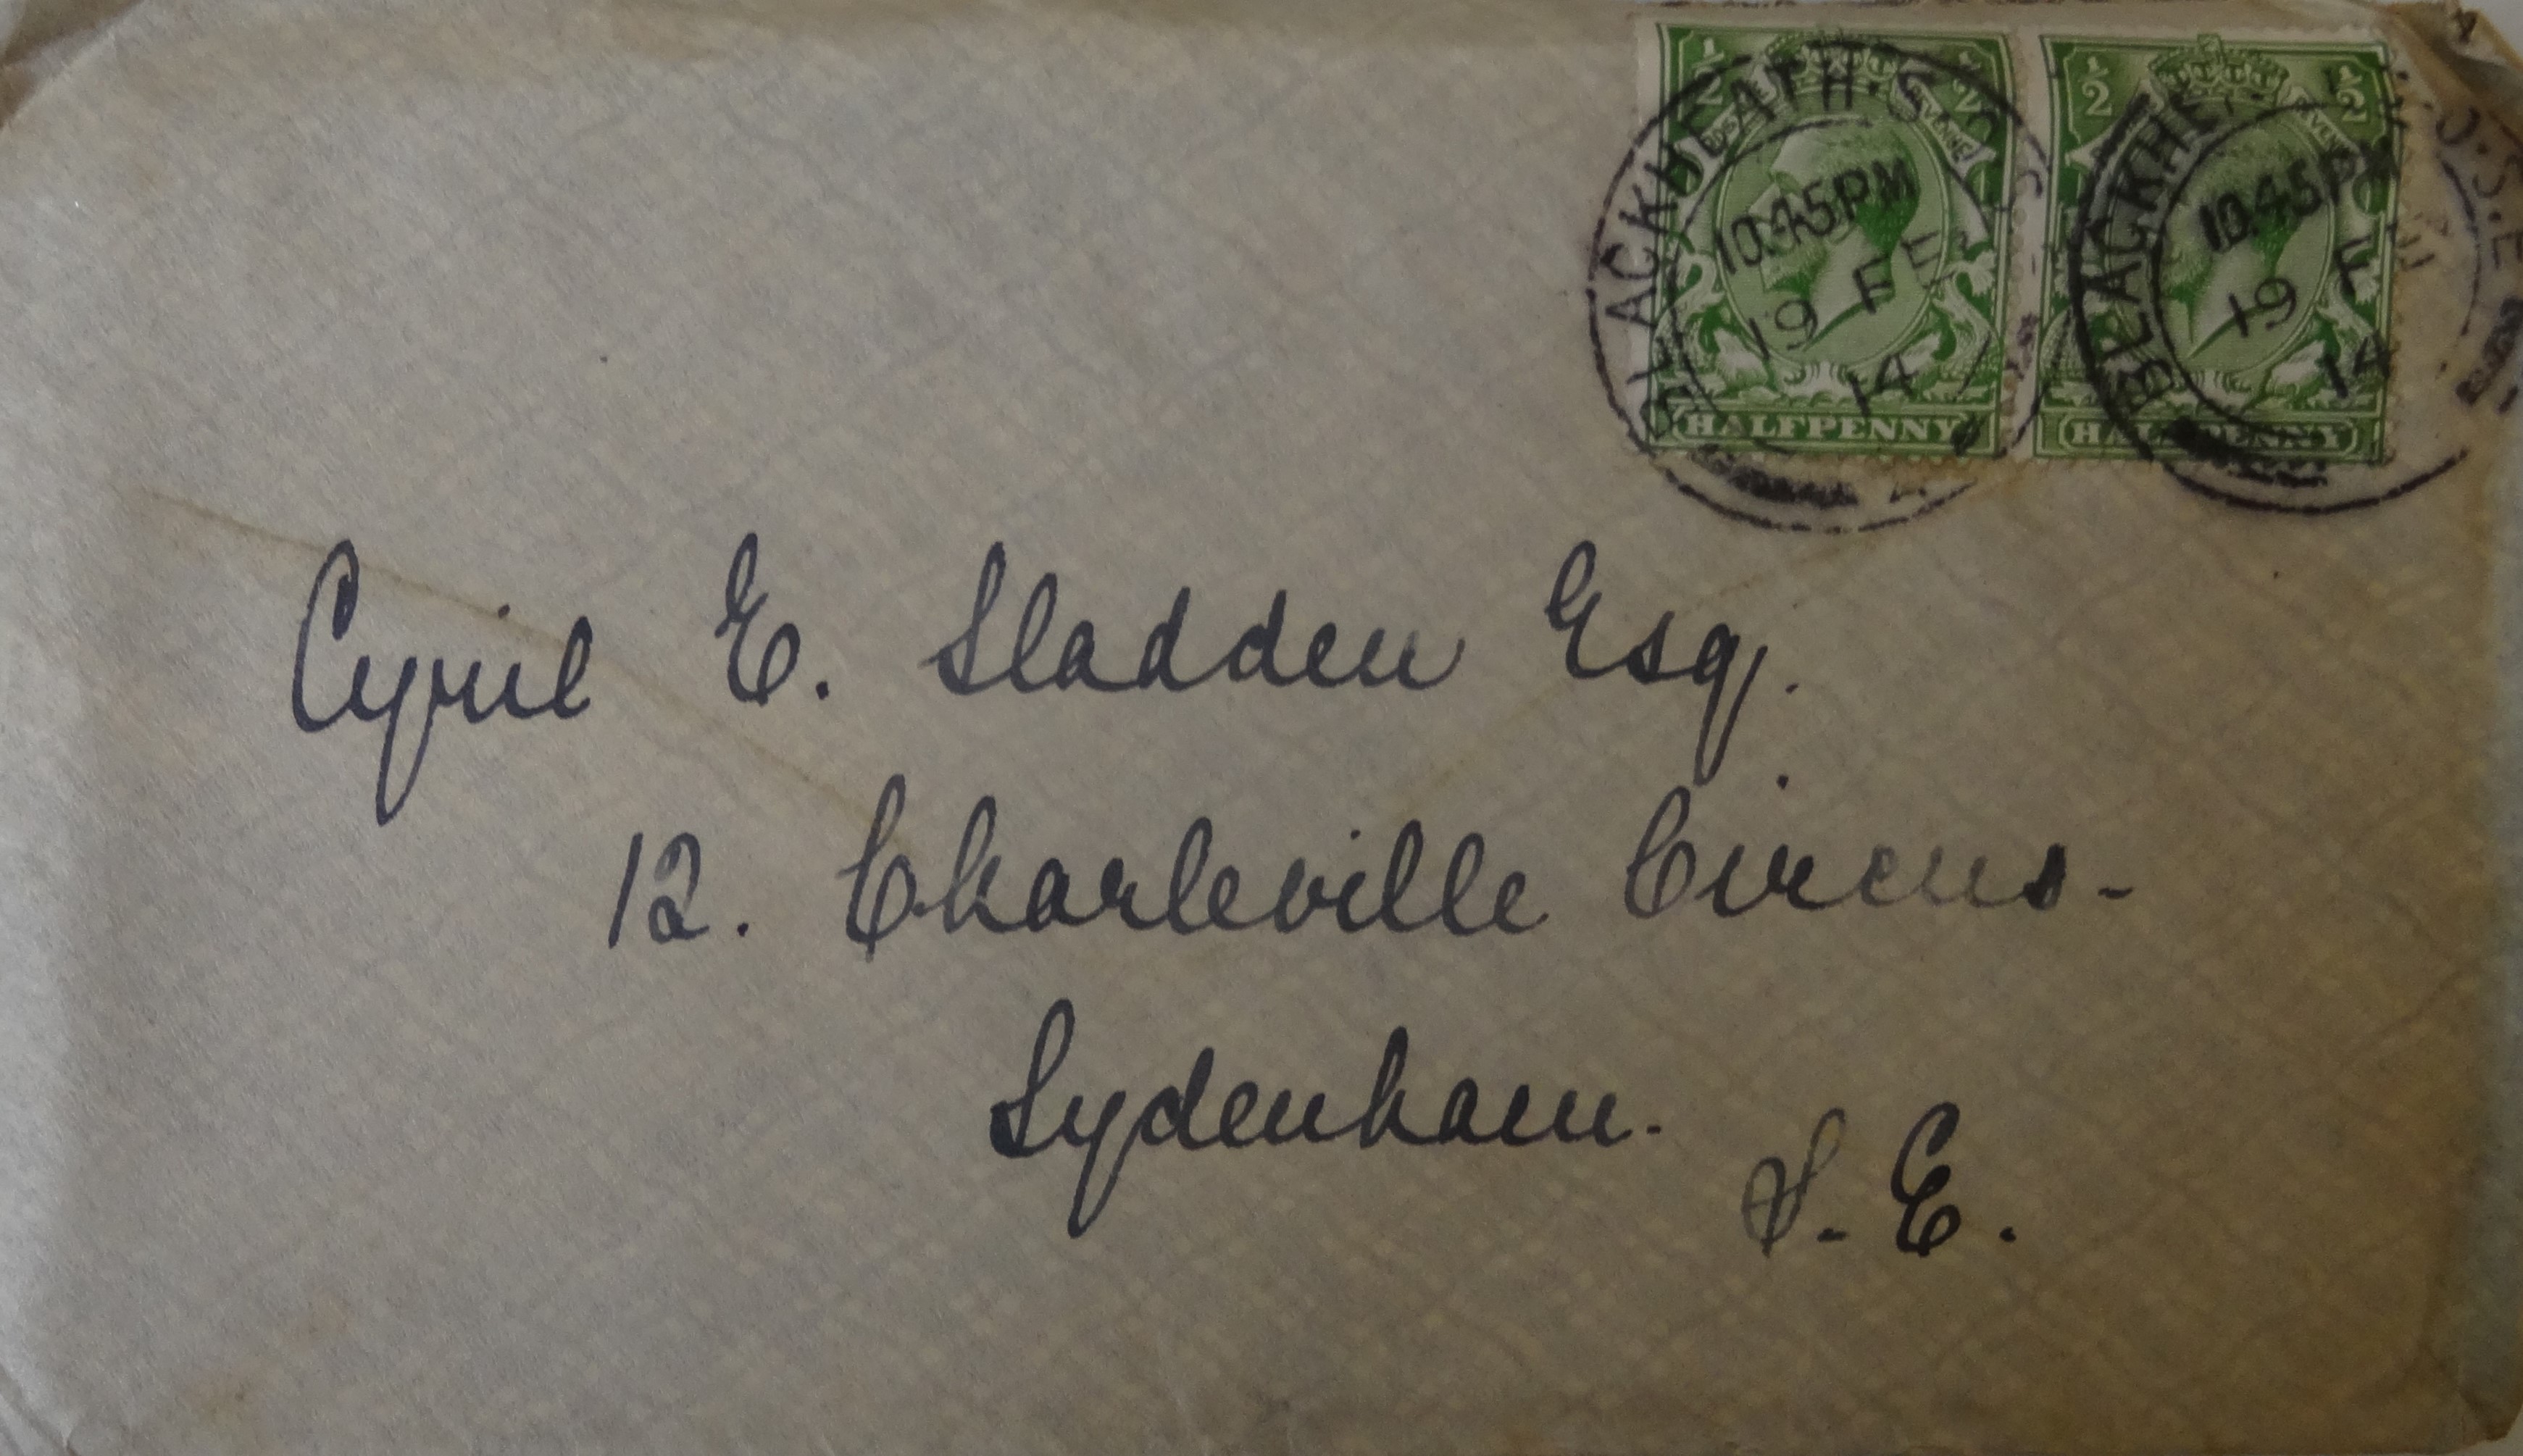 1/2 1/2 1/2 1/2
BLACKHEATH · S.O. BLACKHE S.O. S.E
10.45PM 10.45PM
19 FE 19 F
14 14
HALFPENNY HALFPENNY
Cyril E. Sladden Esq.
12. Charleville Circus-
Sydenham.
S. E.